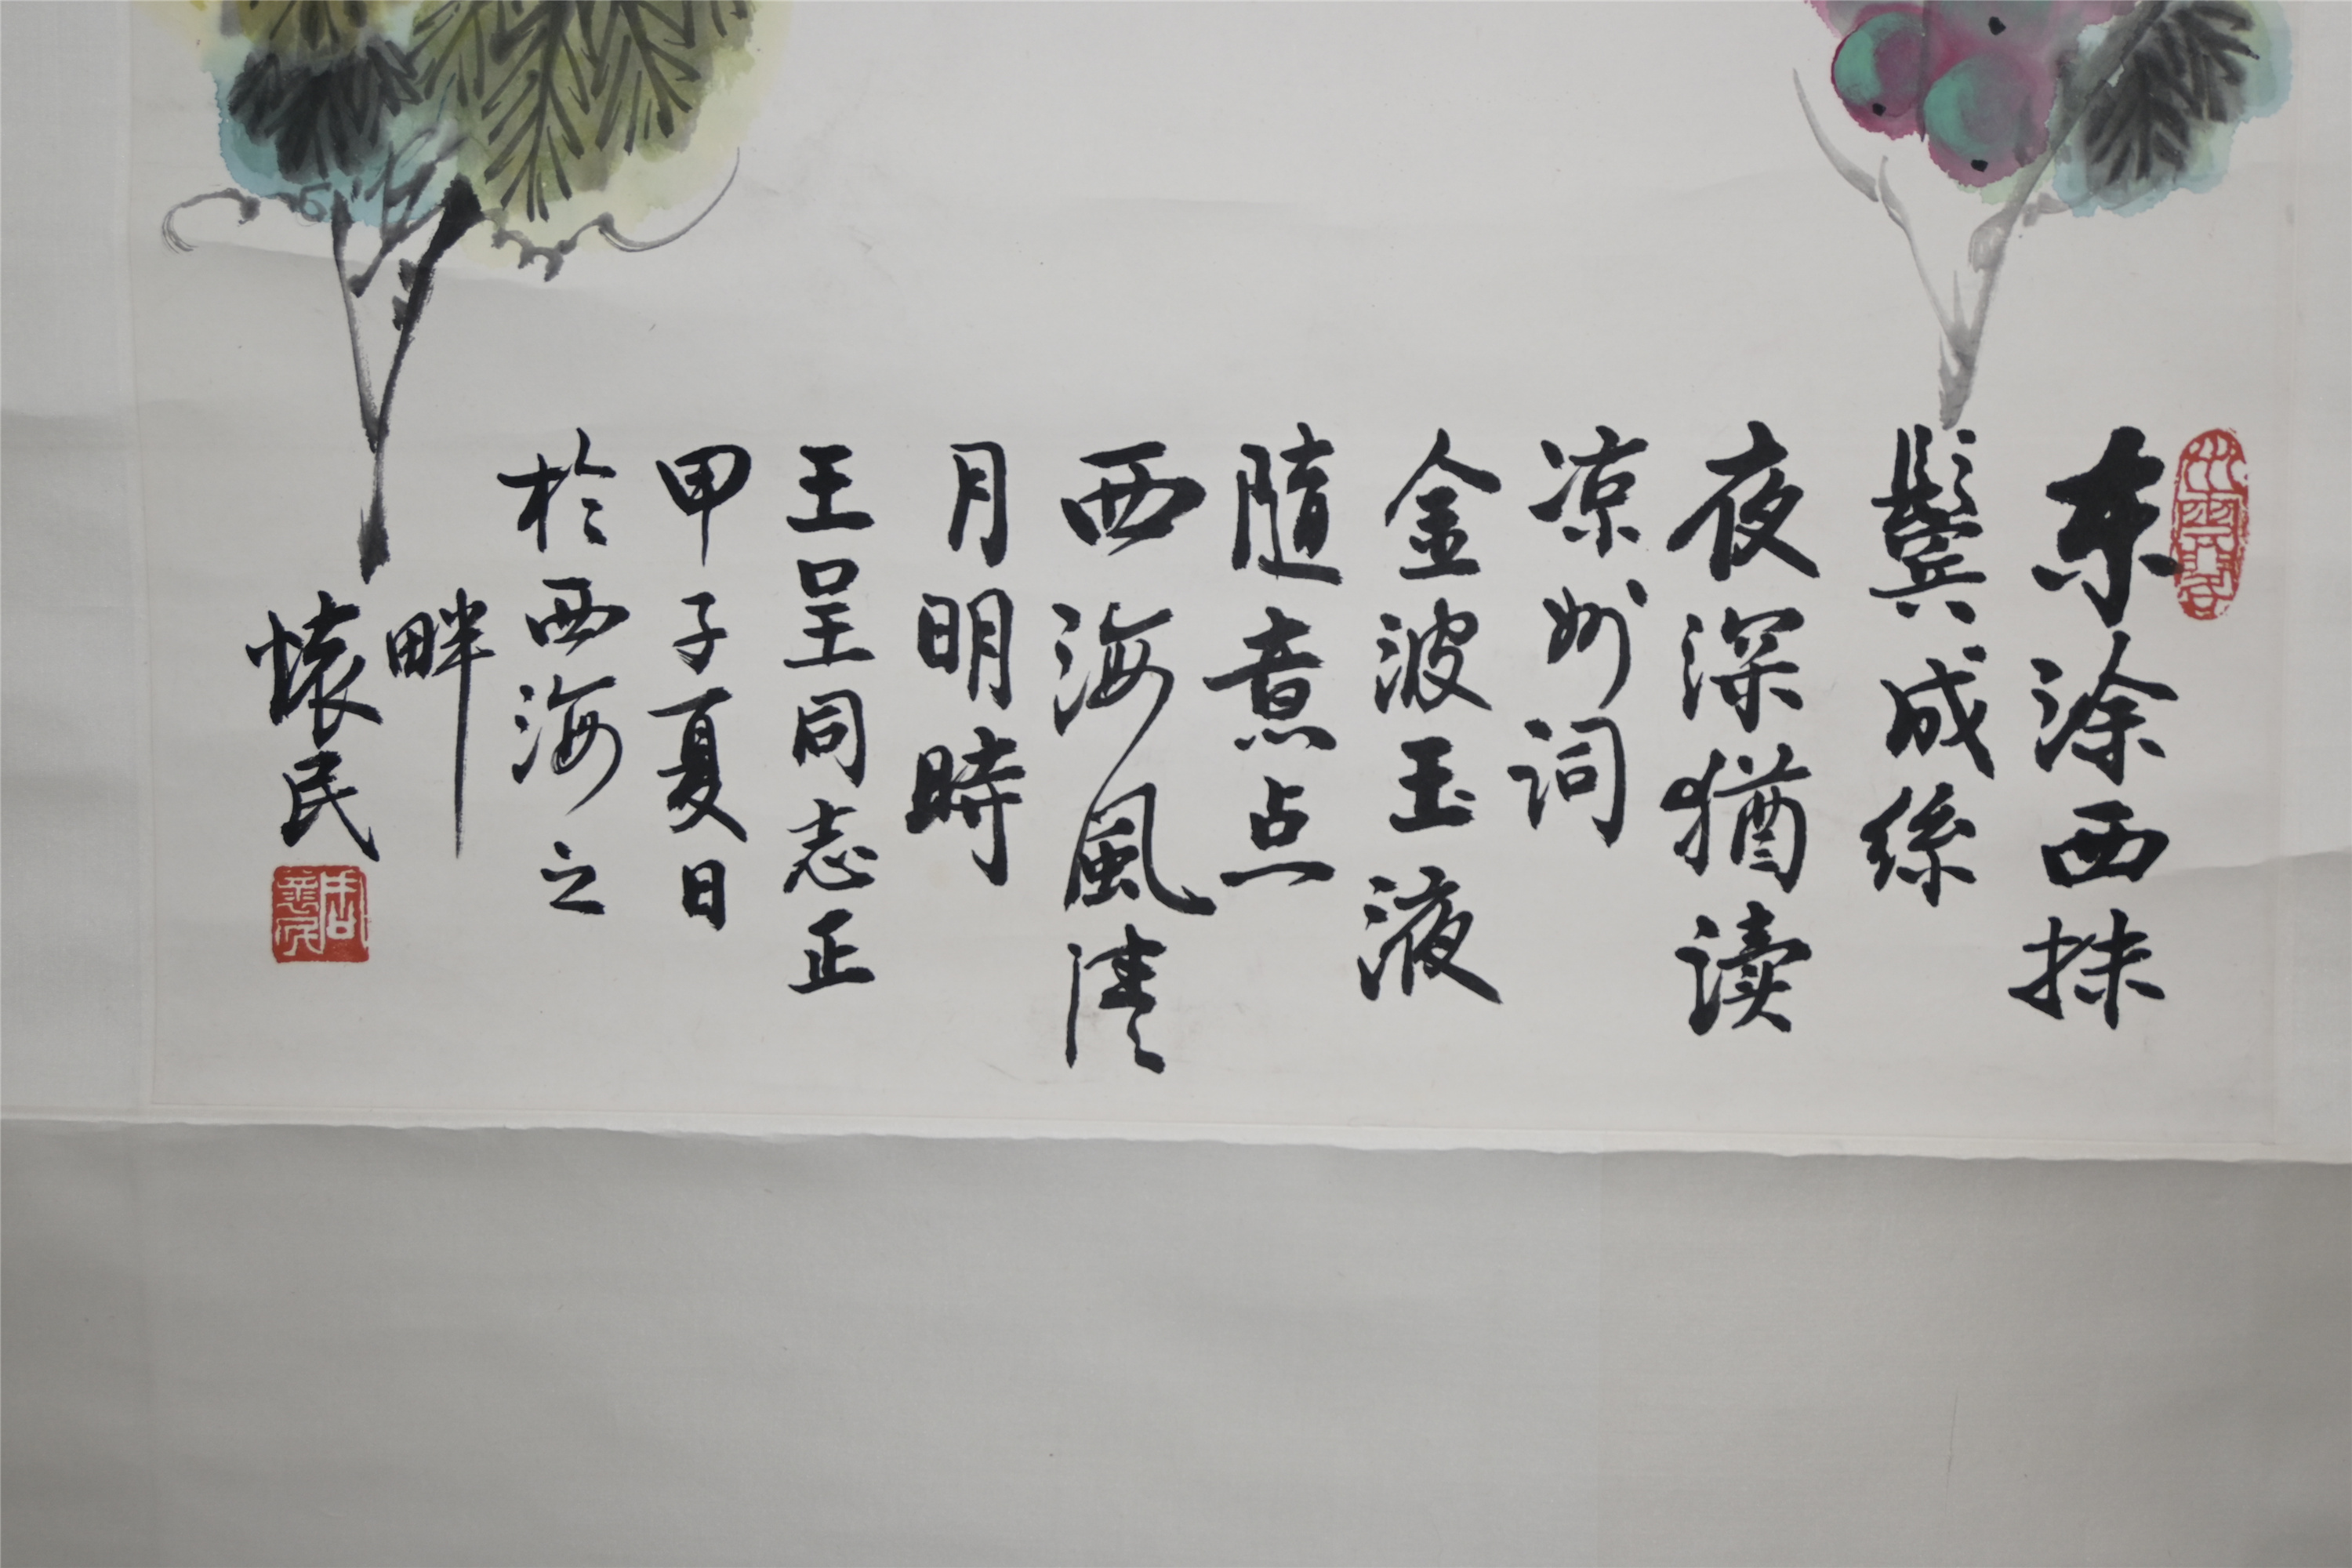 东涂西抹
鬓成絲
夜深猶读
凉州词
金波玉液
随意点
西海風清
月明時
王呈同志正
甲子夏日
於西海之
畔
懐民